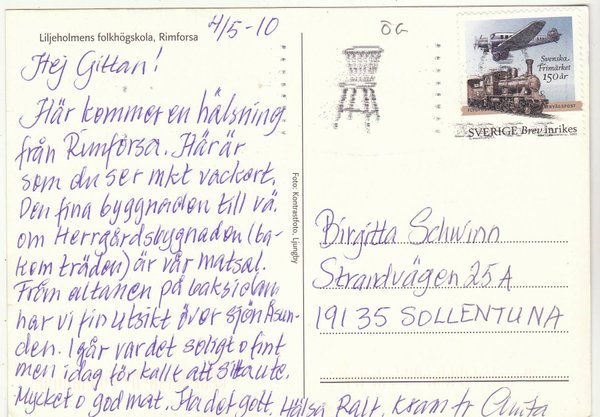 Liljeholmens folkhögskola, Rimforsa
4/5-10
ÖG
Hej Gittan!
Här kommer en hälsning
från Rimforsa. Här är
som du ser mkt vackert.
Den fina byggnaden till vä.
om Herrgårdsbygnaden (ba-
kom träden) är vår matsal.
Från altanen på baksidan
har vi fin utsikt över sjön Åsun-
den. I går var det soligt o fint
men idag för kallt att sitta ute.
Mycket o god mat. Ha det gott. Hälsa Ralf. Kram fr Anita
Foto: Kontrastfoto, Ljungby
Svenska
Frimärket
150 år
SVERIGE Brev inrikes
Birgitta Schwinn
Strandvägen 25A
191 35 SOLLENTUNA